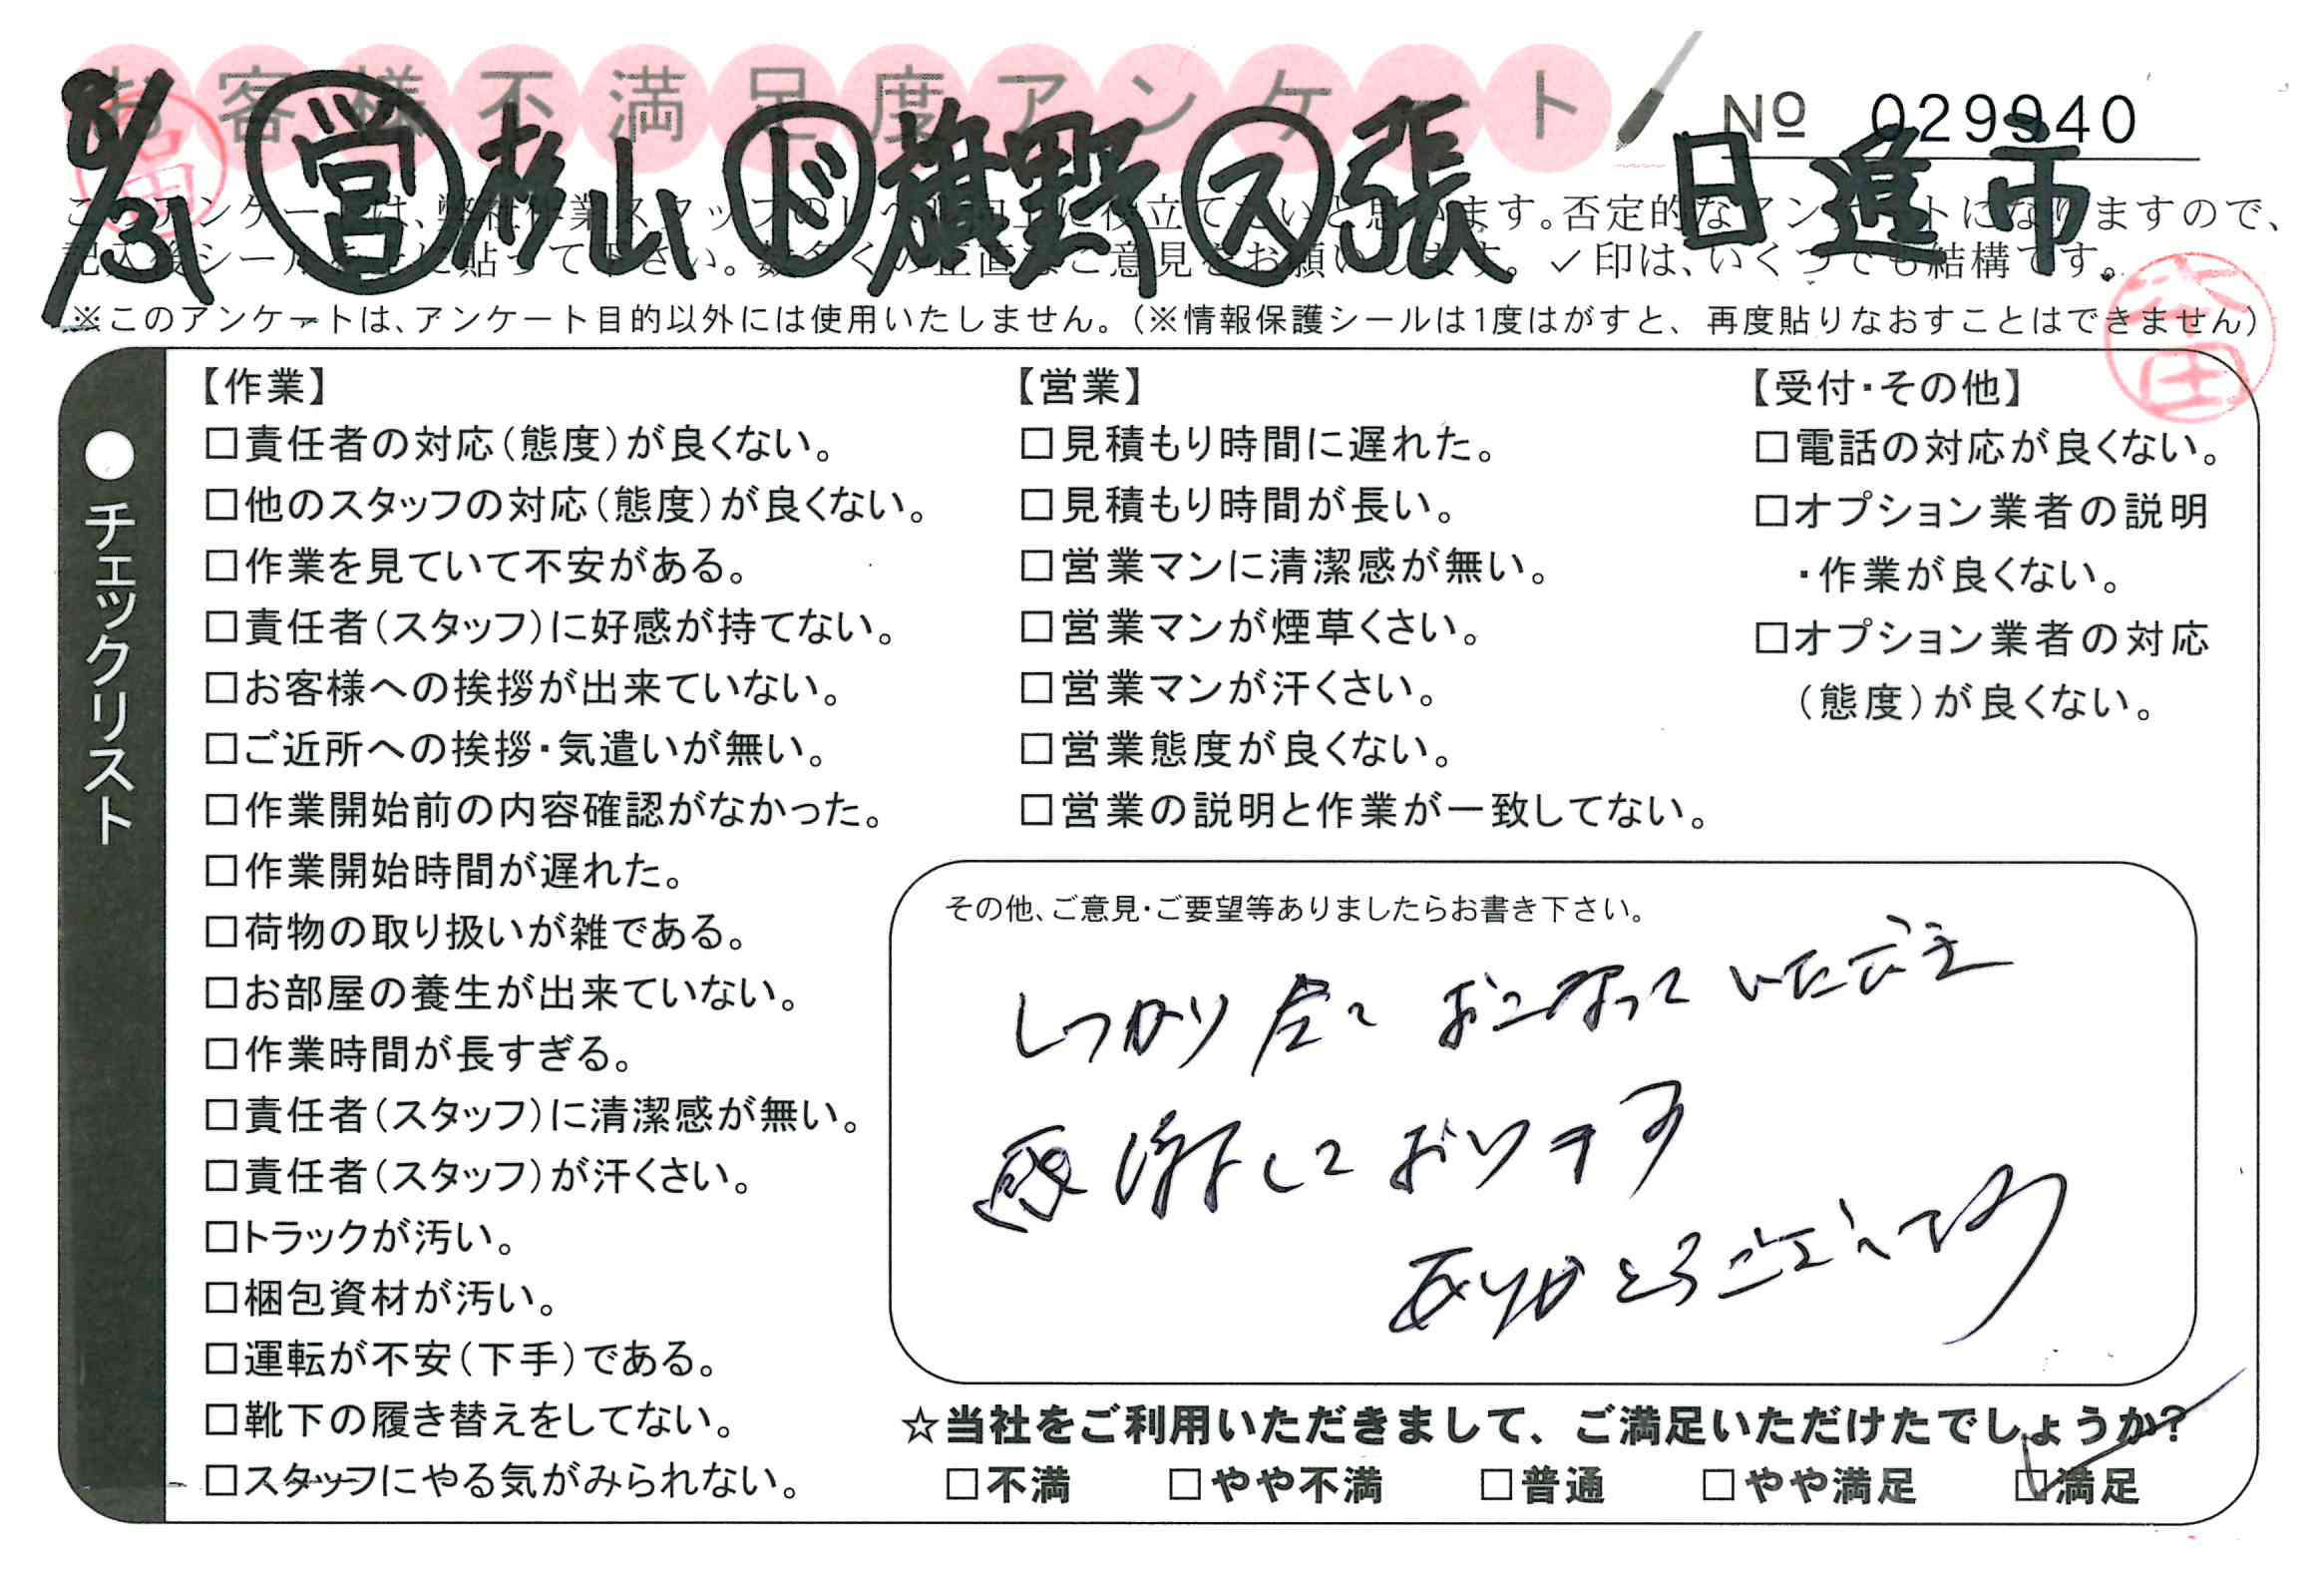 お客様不満足度アンケート
№ 029940
8/31 営 杉山 ド 旗野 ス 張 日進市
このアンケートは、弊社作業スタッフのレベル向上に役立てたいと思います。否定的なアンケートになりますので、
記入後シールを上に貼って下さい。数多くの正直なご意見をお願いします。✓印は、いくつでも結構です。
※このアンケートは、アンケート目的以外には使用いたしません。(※情報保護シールは1度はがすと、再度貼りなおすことはできません)
●チェックリスト
【作業】
□責任者の対応(態度)が良くない。
□他のスタッフの対応(態度)が良くない。
□作業を見ていて不安がある。
□責任者(スタッフ)に好感が持てない。
□お客様への挨拶が出来ていない。
□ご近所への挨拶・気遣いが無い。
□作業開始前の内容確認がなかった。
□作業開始時間が遅れた。
□荷物の取り扱いが雑である。
□お部屋の養生が出来ていない。
□作業時間が長すぎる。
□責任者(スタッフ)に清潔感が無い。
□責任者(スタッフ)が汗くさい。
□トラックが汚い。
□梱包資材が汚い。
□運転が不安(下手)である。
□靴下の履き替えをしてない。
□スタッフにやる気がみられない。
【営業】
□見積もり時間に遅れた。
□見積もり時間が長い。
□営業マンに清潔感が無い。
□営業マンが煙草くさい。
□営業マンが汗くさい。
□営業態度が良くない。
□営業の説明と作業が一致してない。
【受付・その他】
□電話の対応が良くない。
□オプション業者の説明
・作業が良くない。
□オプション業者の対応
(態度)が良くない。
その他、ご意見・ご要望等ありましたらお書き下さい。
しっかり おこなって いただき
感謝して おります
ありがとうございます
☆当社をご利用いただきまして、ご満足いただけたでしょうか?
□不満 □やや不満 □普通 □やや満足 ☑満足